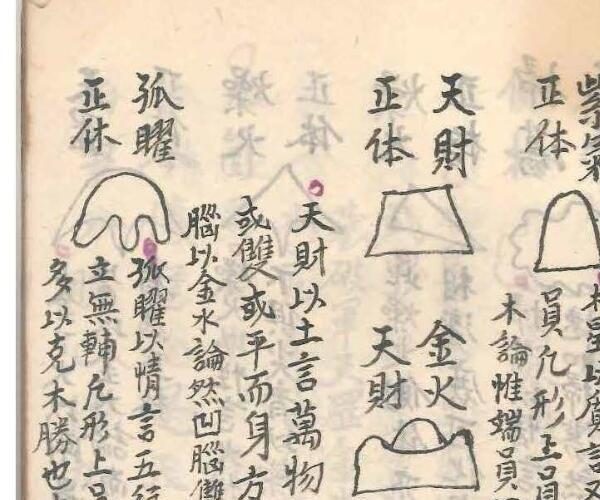 紫氣
正体
木星以質言
員凡形上員
木論惟端員
天財
正体
金火
天財
天財以土言萬物
或雙或平而身方
腦以金水論然凹腦雙
孤曜
正体
孤曜以情言五行
立無輔凡形上員
多以克木勝也